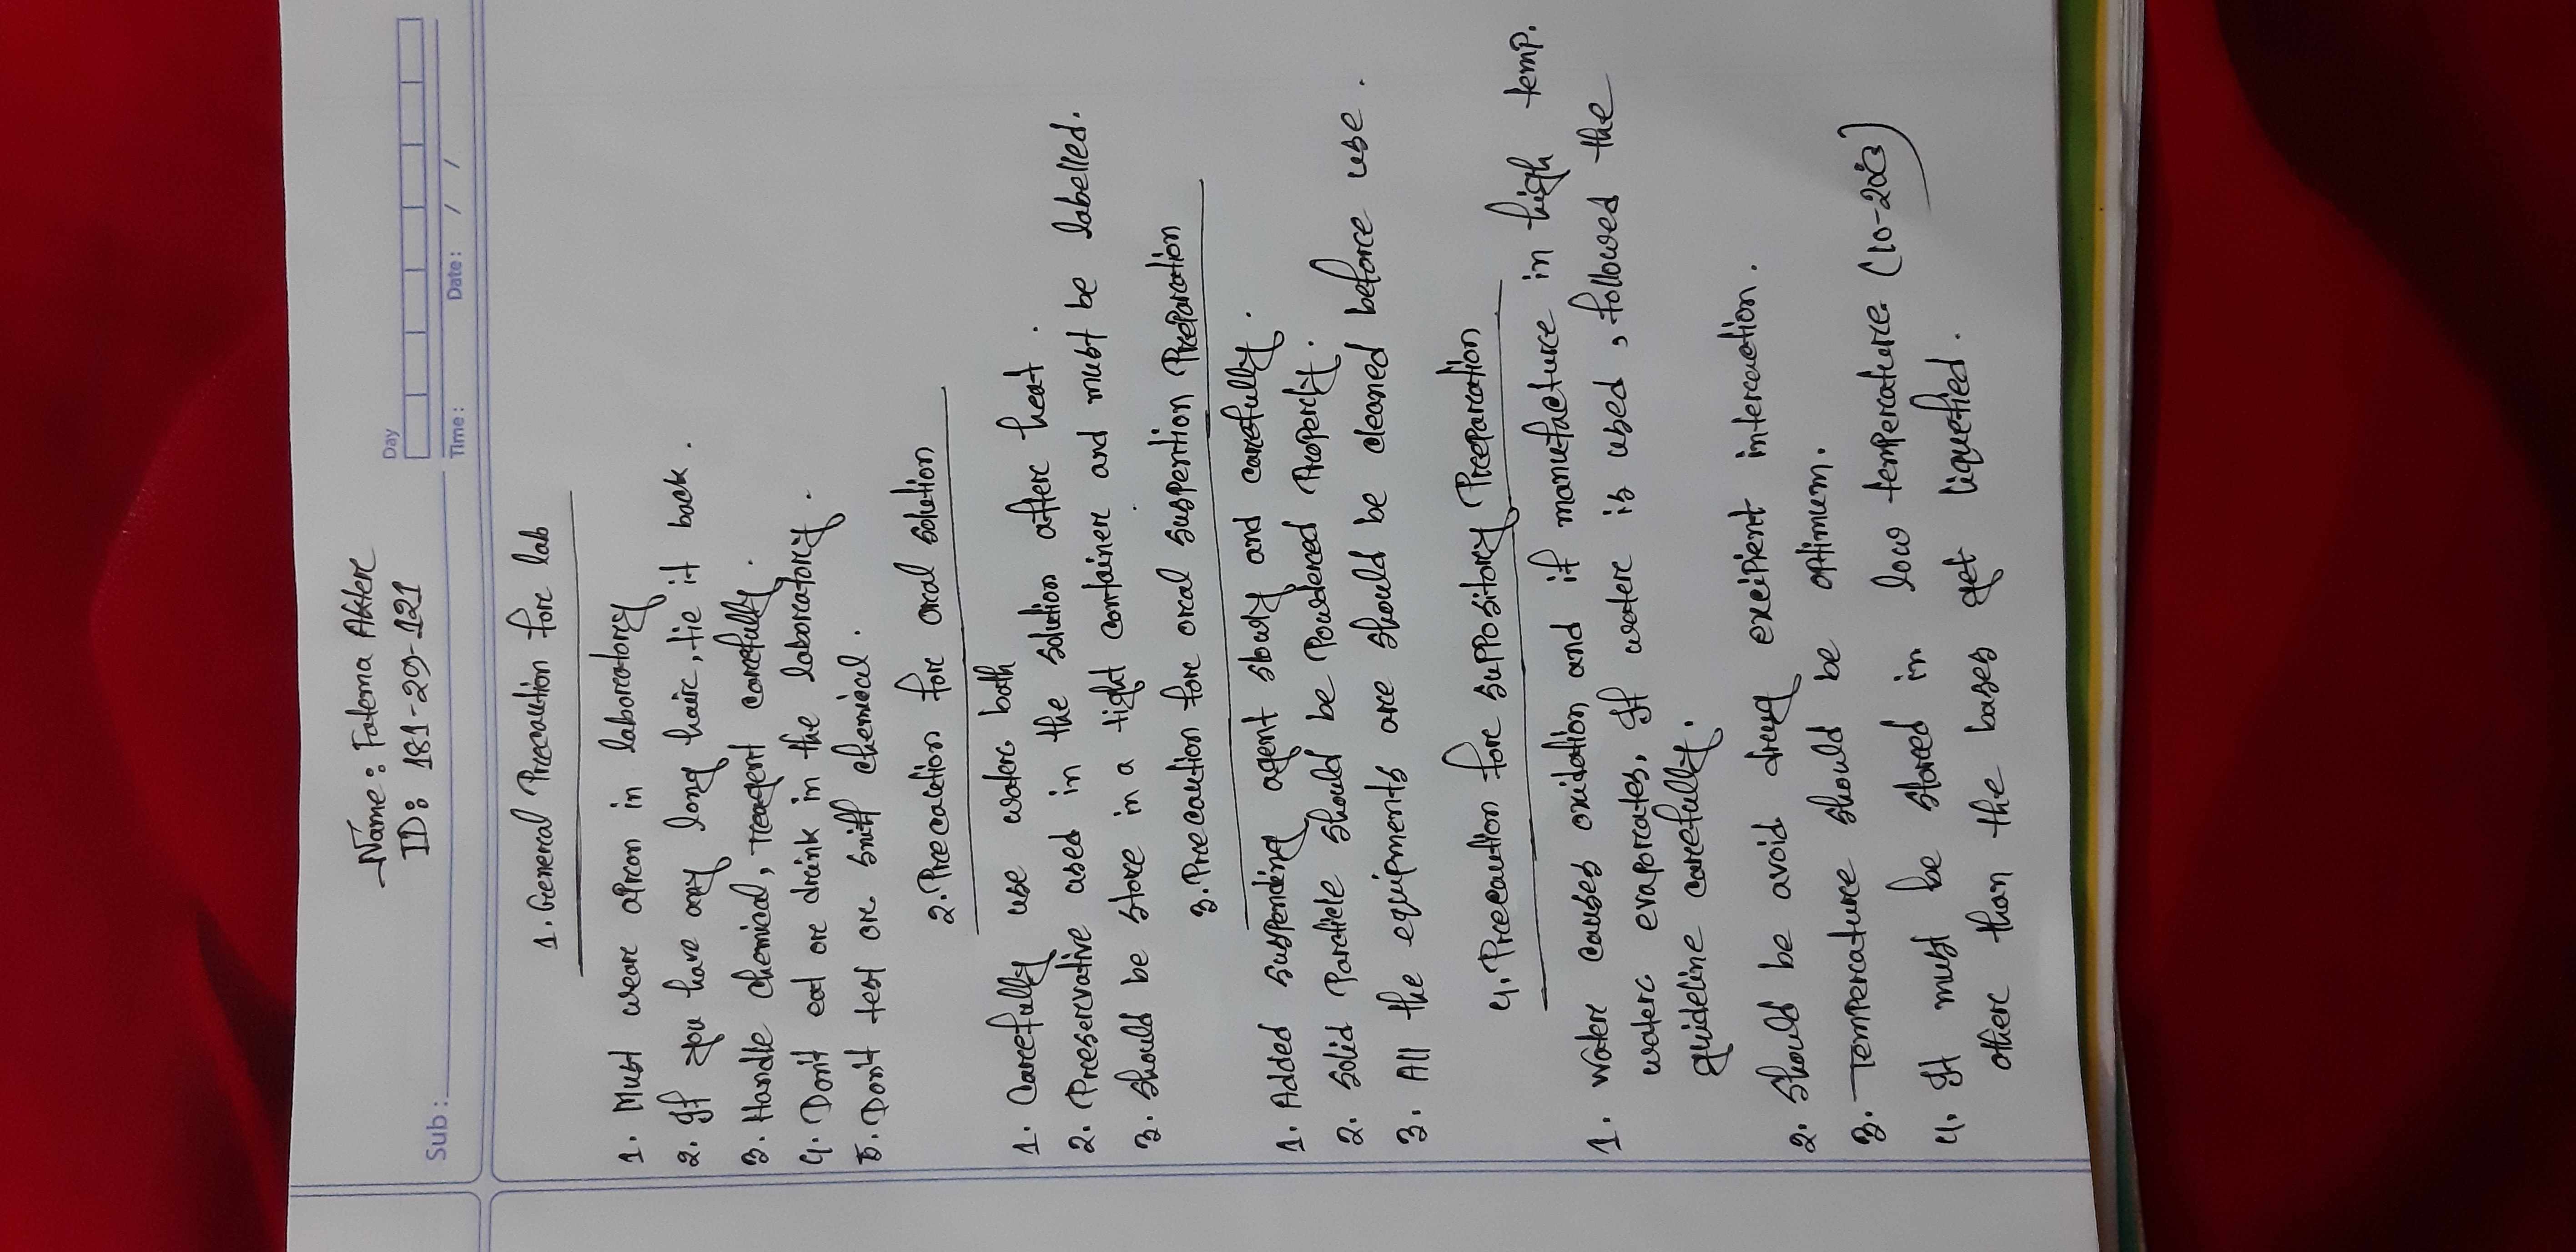 Name : Fatema Akter
ID: 181-29-121
Sub :
Day
Time :
Date : / /
1. General Precaution for lab
1. Must wear apron in laboratory
2. If you have any long hair, tie it back.
3. Handle chemical, reagent carefully.
4. Don't eat or drink in the laboratory.
5. Don't test or sniff chemical.
2. Precaution for oral solution
1. Carefully use water bath
2. Preservative used in the solution after heat.
3. Should be store in a tight container and must be labelled.
3. Precaution for oral suspention Preparation
1. Added suspending agent slowly and carefully.
2. Solid Particle should be Powdered Properly.
3. All the equipments are should be cleaned before use.
4. Precaution for suppository Preparation
1. Water causes oxidation and if manufacture in high temp.
water evaporates. If water is used, followed the
guideline carefully.
2. Should be avoid drug excipient interaction.
3. Temperature should be optimum.
4. It must be stored in low temperature (10-20°C)
other than the bases get liquefied.